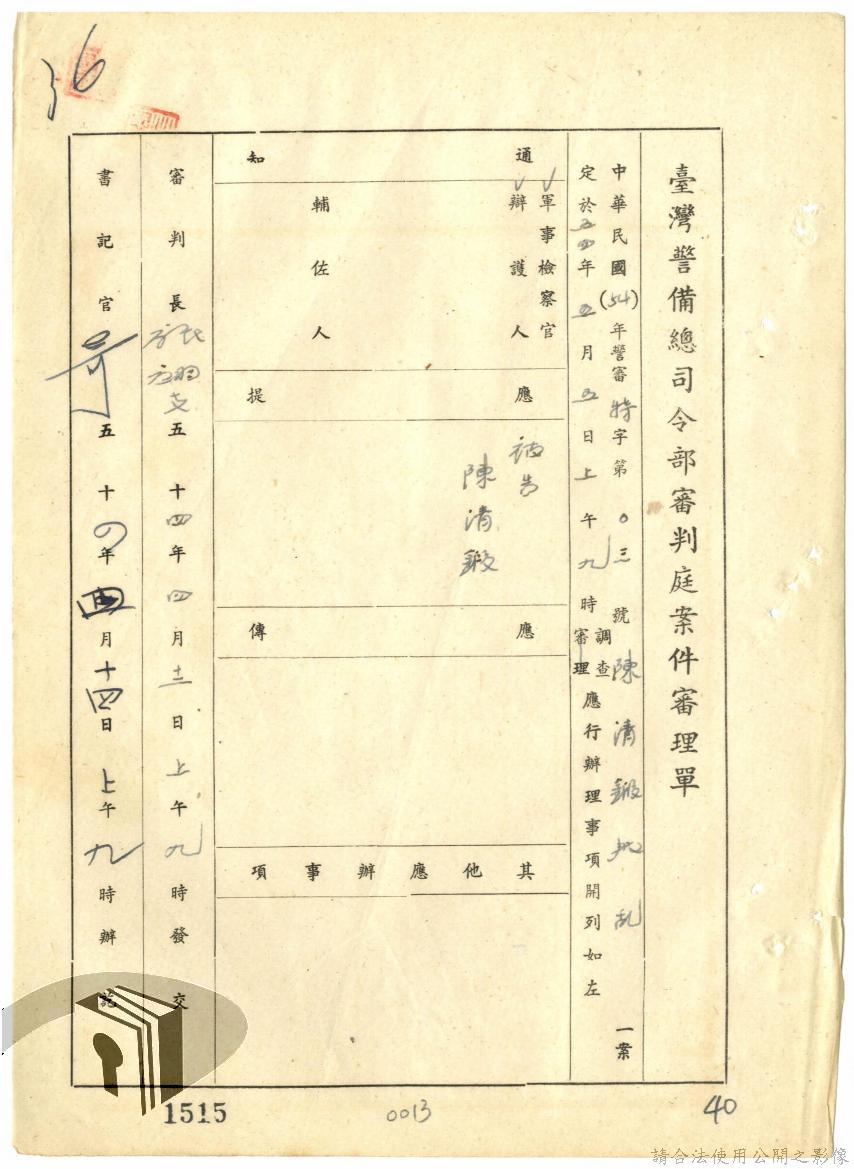 36
臺灣警備總司令部審判庭案件審理單
中華民國(54)年警審特字第〇三號陳清鍛叛乱一案
定於五四年五月五日上午九時調查審理應行辦理事項開列如左
通知
軍事檢察官
辯護人
輔佐人
應提
被告
陳清鍛
應傳
其他應辦事項
審判長 五十四年四月十三日上午九時發交
書記官 五十四年四月十四日上午九時辦訖
1515
0013
40
請合法使用公開之影像